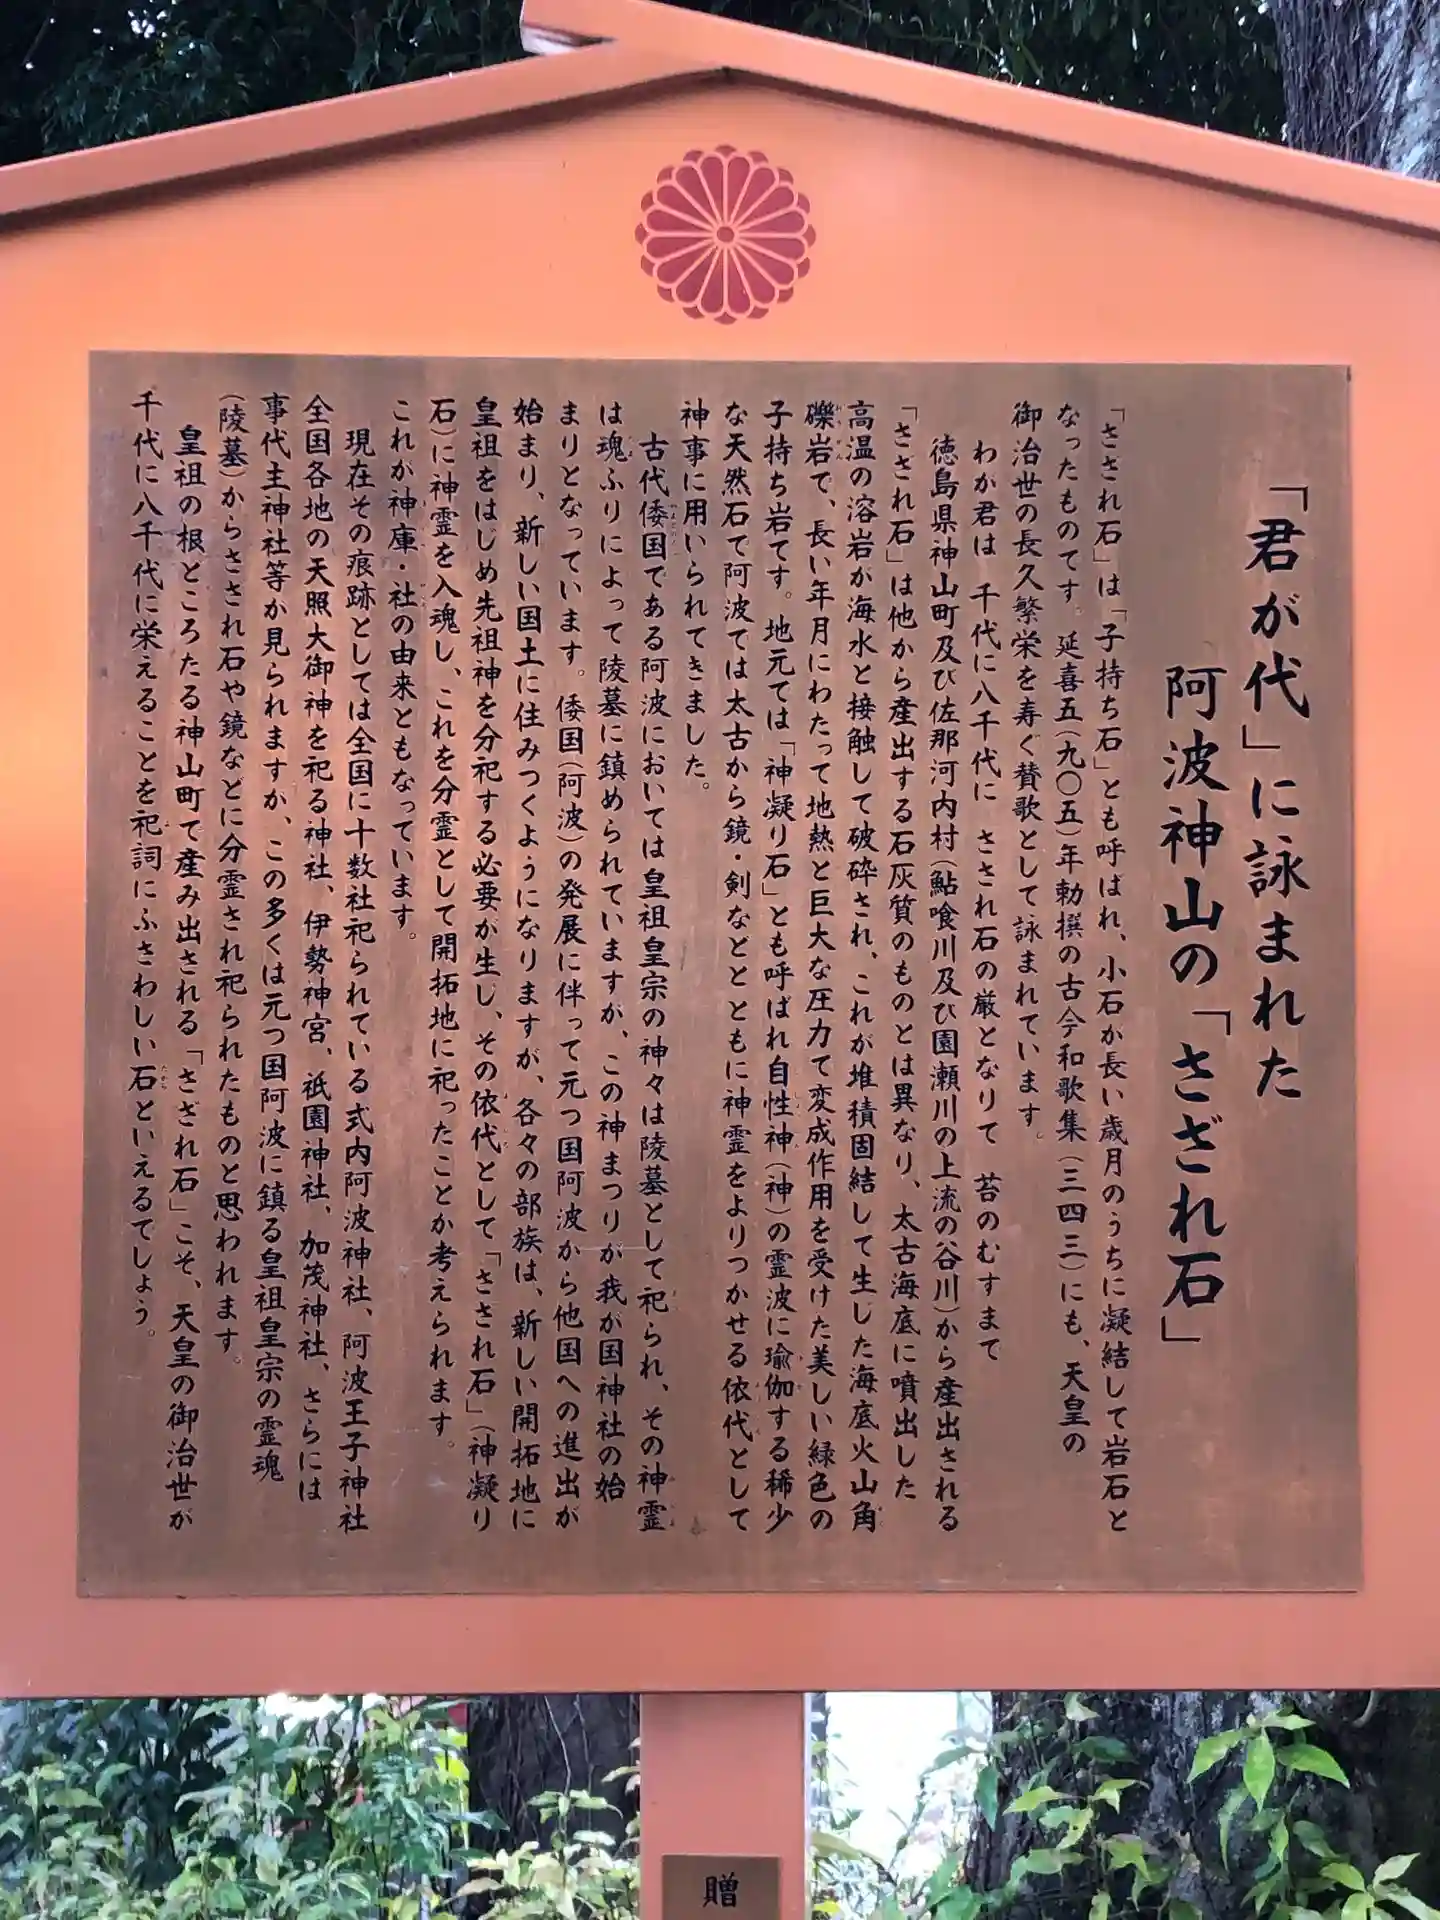 「君が代」に詠まれた
阿波神山の「さざれ石」
「さざれ石」は「子持ち石」とも呼ばれ、小石か長い歳月のうちに凝結して岩石と
なったものてす。延喜五(九〇五)年勅撰の古今和歌集(三四三)にも、天皇の
御治世の長久繁栄を寿ぐ賛歌として詠まれています。
わが君は 千代に八千代に さされ石の厳となりて 苔のむすまて
徳島県神山町及び佐那河内村(鮎喰川及び園瀬川の上流の谷川)から産出される
「さざれ石」は他から産出する石灰質のものとは異なり、太古海底に噴出した
高温の溶岩が海水と接触して破砕され、これが堆積固結して生じた海底火山角
礫岩で、長い年月にわたって地熱と巨大な圧力て変成作用を受けた美しい緑色の
子持ち岩てす。地元ては「神凝り石」とも呼ばれ自性神(神)の霊波に瑜伽する稀少
な天然石て阿波ては太古から鏡・剣なとともに神霊をよりつかせる依代として
神事に用いられてきました。
古代倭国である阿波においては皇祖皇宗の神々は陵墓として祀られ、その神霊
は魂ふりによって陵墓に鎮められていますが、この神まつりが我が国神社の始
まりとなっています。倭国(阿波)の発展に伴って元つ国阿波から他国への進出が
始まり、新しい国土に住みつくようになりますが、各々の部族は、新しい開拓地に
皇祖をはじめ先祖神を分祀する必要が生し、その依代として「さされ石」(神凝り
石)に神霊を入魂し、これを分霊として開拓地に祀ったことか考えられます。
これが神庫・社の由来ともなっています。
現在その痕跡としては全国に十数社祀られている式内阿波神社、阿波王子神社
全国各地の天照大御神を祀る神社、伊勢神宮、祇園神社、加茂神社、さらには
事代主神社等か見られますか、この多くは元つ国阿波に鎮る皇祖皇宗の霊魂
(陵墓)からさされ石や鏡などに分霊され祀られたものと思われます。
皇祖の根ところたる神山町て産み出される「さざれ石」こそ、天皇の御治世が
千代に八千代に栄えることを祀詞にふさわしい石といえるてしょう。
贈